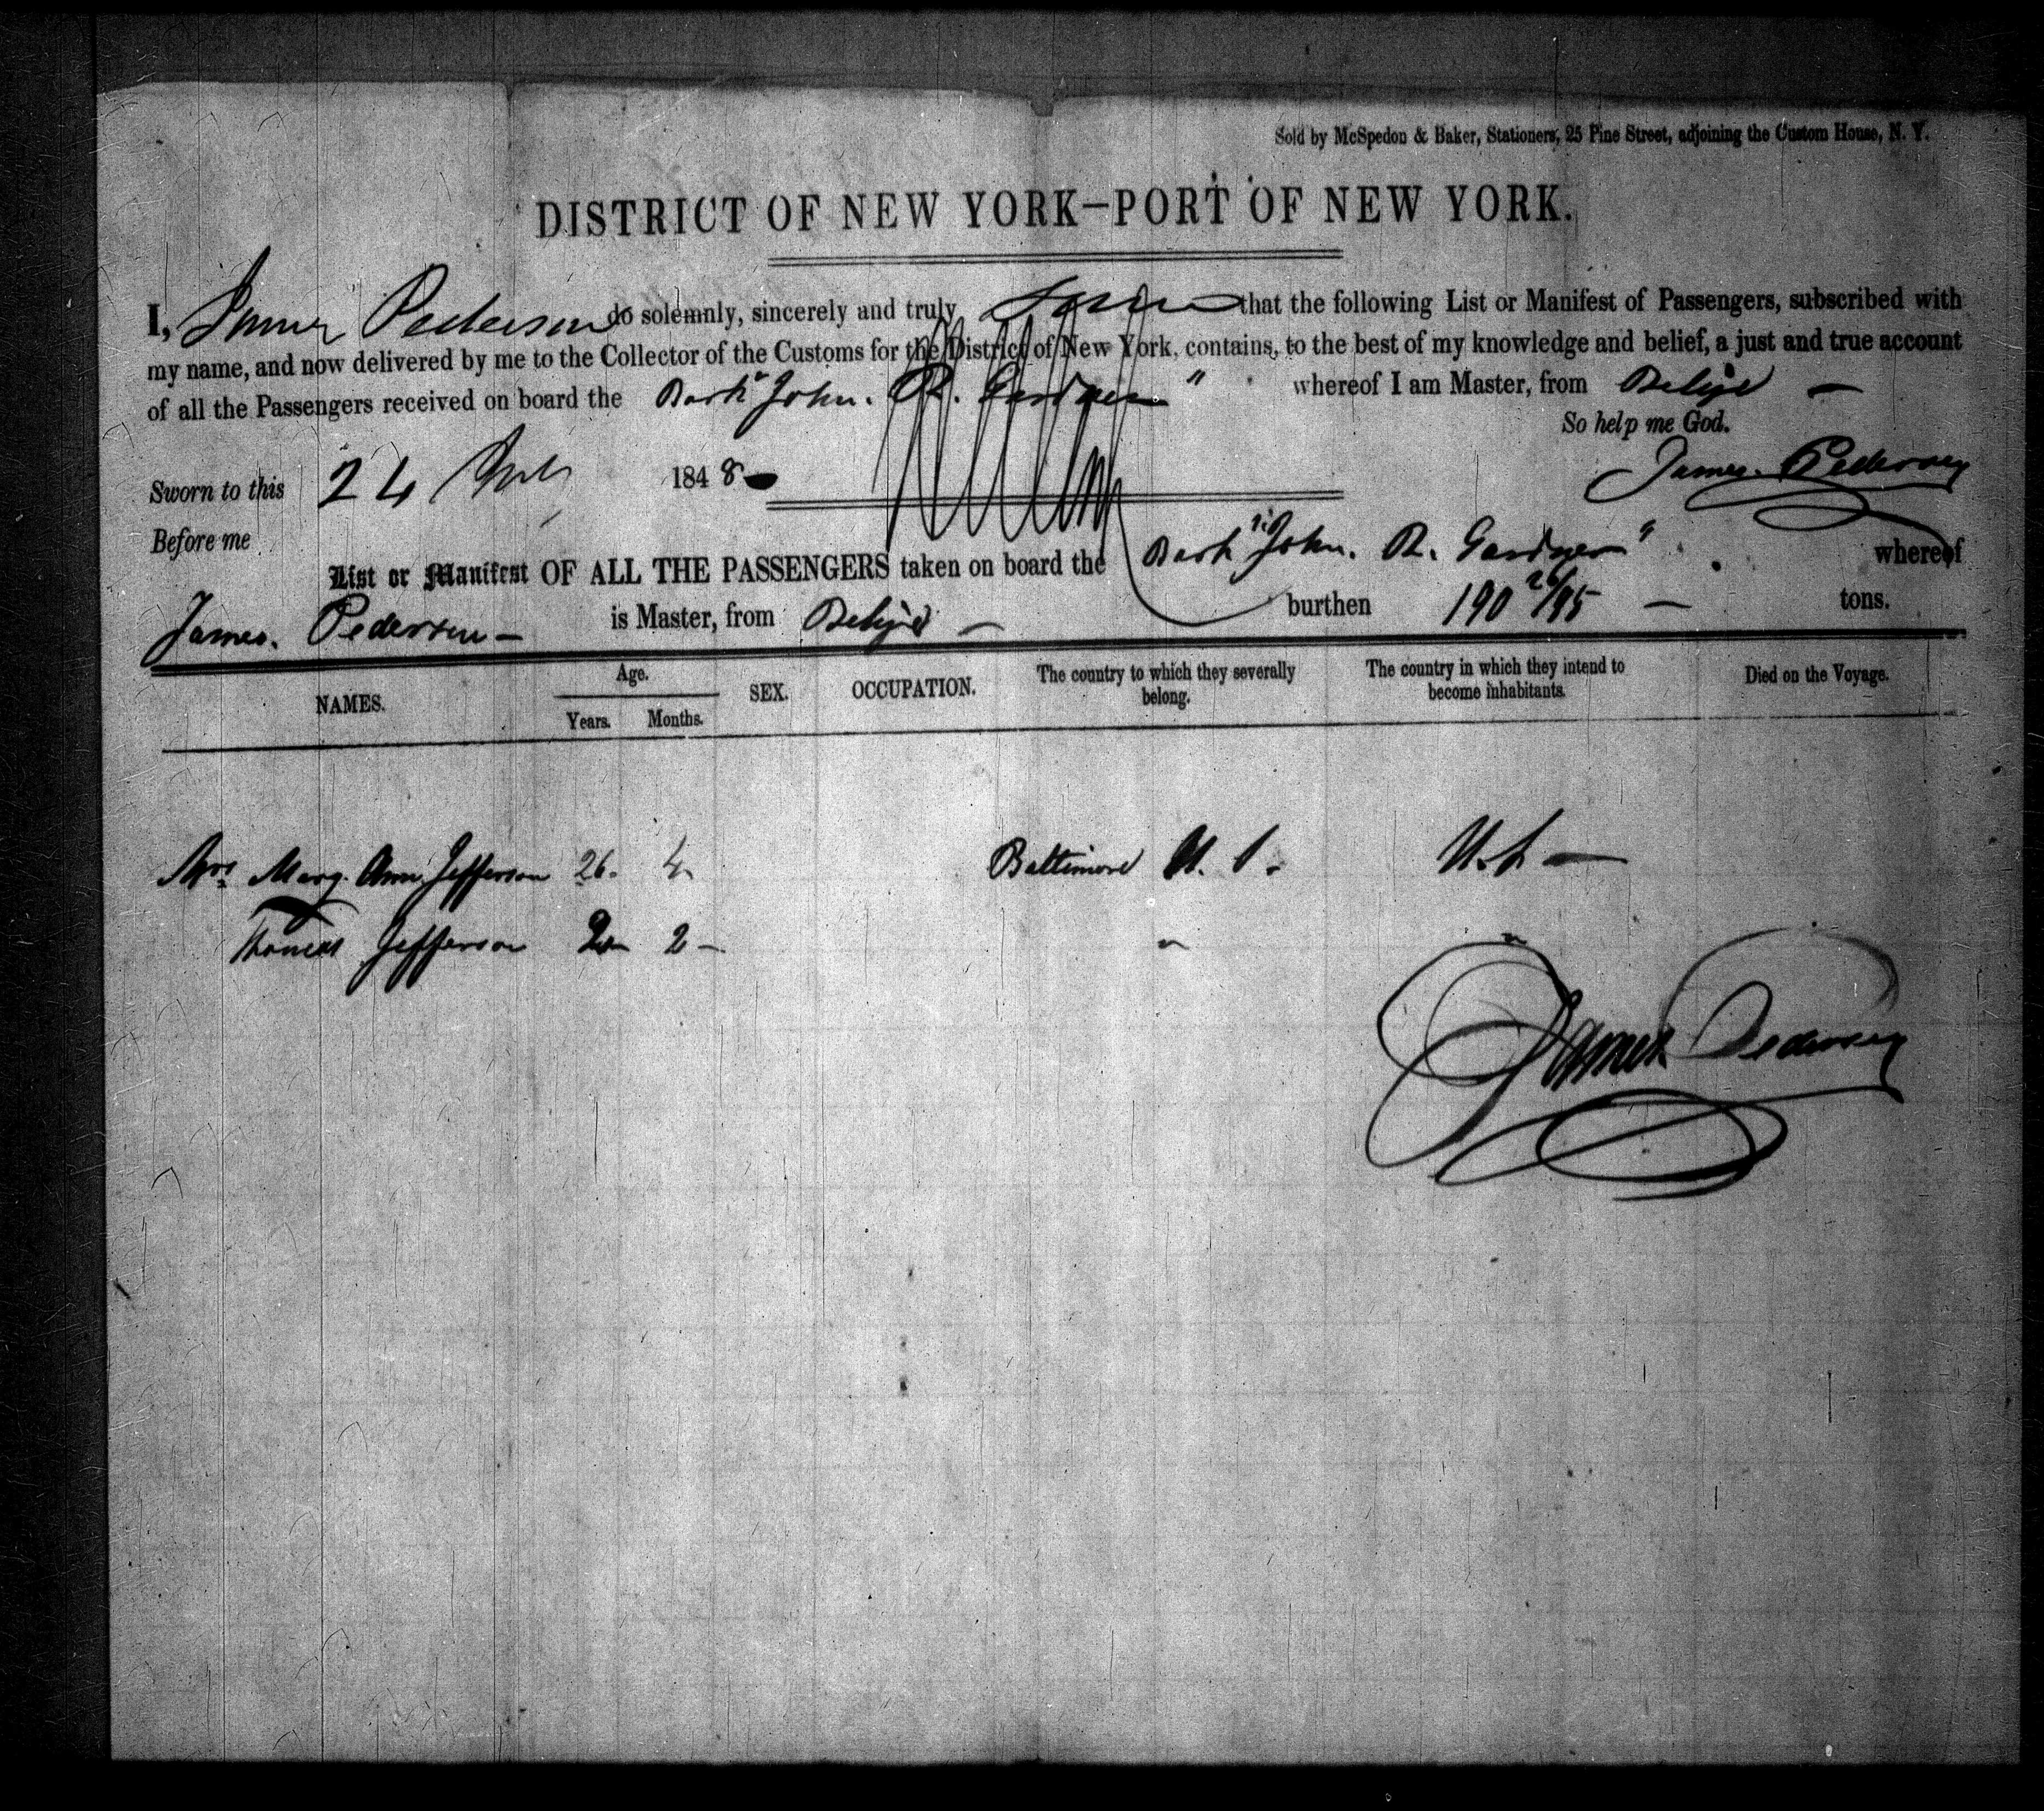 Sold by McSpedon & Baker, Stationers, 25 Pine Street, adjoining the Custom House, N. Y.
DISTRICT OF NEW YORK—PORT OF NEW YORK.
I, James Pedersen do solemnly, sincerely and truly swear that the following List or Manifest of Passengers, subscribed with
my name, and now delivered by me to the Collector of the Customs for the District of New York, contains, to the best of my knowledge and belief, a just and true account
of all the Passengers received on board the Bark "John. R. Gardner" whereof I am Master, from Belize —
So help me God.
Sworn to this 24 1848 James. Pedersen
Before me
List or Manifest OF ALL THE PASSENGERS taken on board the Bark "John. R. Gardner" whereof
James. Pedersen — is Master, from Belize — burthen 190 26/95 — tons.
NAMES. Age. Years. Months. SEX. OCCUPATION. The country to which they severally belong. The country in which they intend to become inhabitants. Died on the Voyage.
Mrs Marg. Ann Jefferson 26. 4. Baltimore U. S. U.S. —
Thomas Jefferson 2 — 2 — " "
James Pedersen